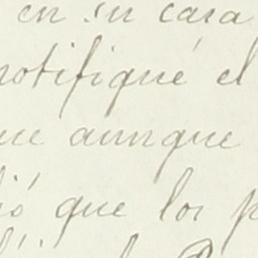 en su casa
notifiqué el
ue aunque
ió que los p